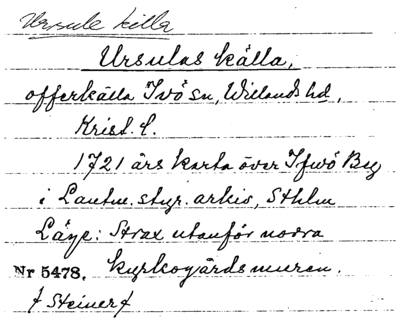 Ursule källa
Ursulas källa,
offerkälla Ivö sn, Willands hd,
Krist. l.
1721 års karta över Ifwö By
i Lantm. styr. arkiv, Sthlm
Läge: Strax utanför norra
Nr 5478. kyrkogårdsmuren.
f Steiner f